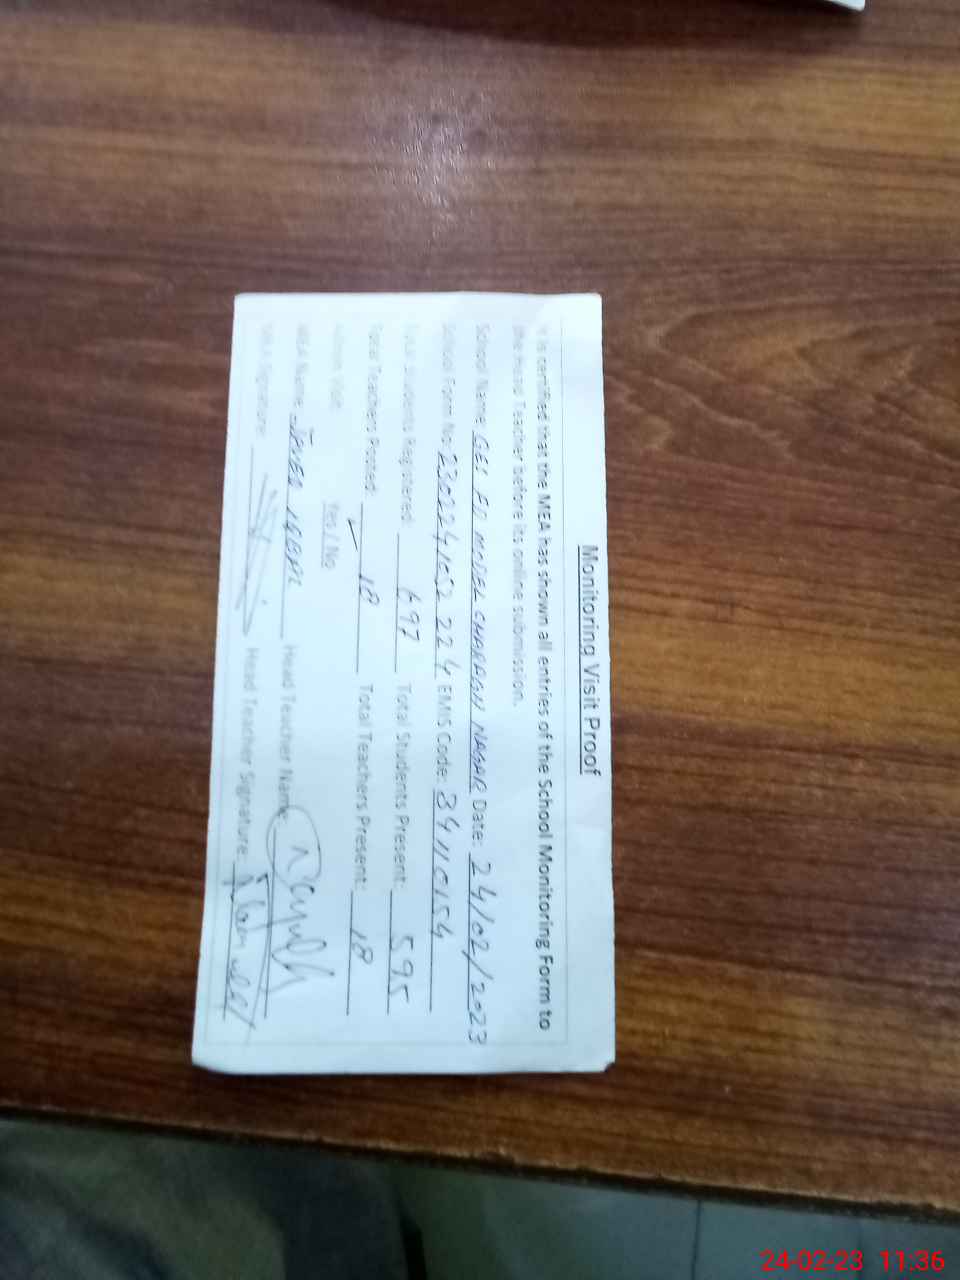 Monitoring Visit Proof
It is certified that the MEA has shown all entries of the School Monitoring Form to
the Head Teacher before its online submission.
School Name: GES MODEL CHARAGH NAGAR Date: 24/02/2023
School Form No: 224 EMIS Code: 34110154
Students Registered: 697 Total Students Present: 595
Total Teachers Posted: 18 Total Teachers Present: 18
Visit: Yes / No
MEA Name: JAVED IQBAL Head Teacher Name:
MEA Signature: Head Teacher Signature:
24-02-23 11:36